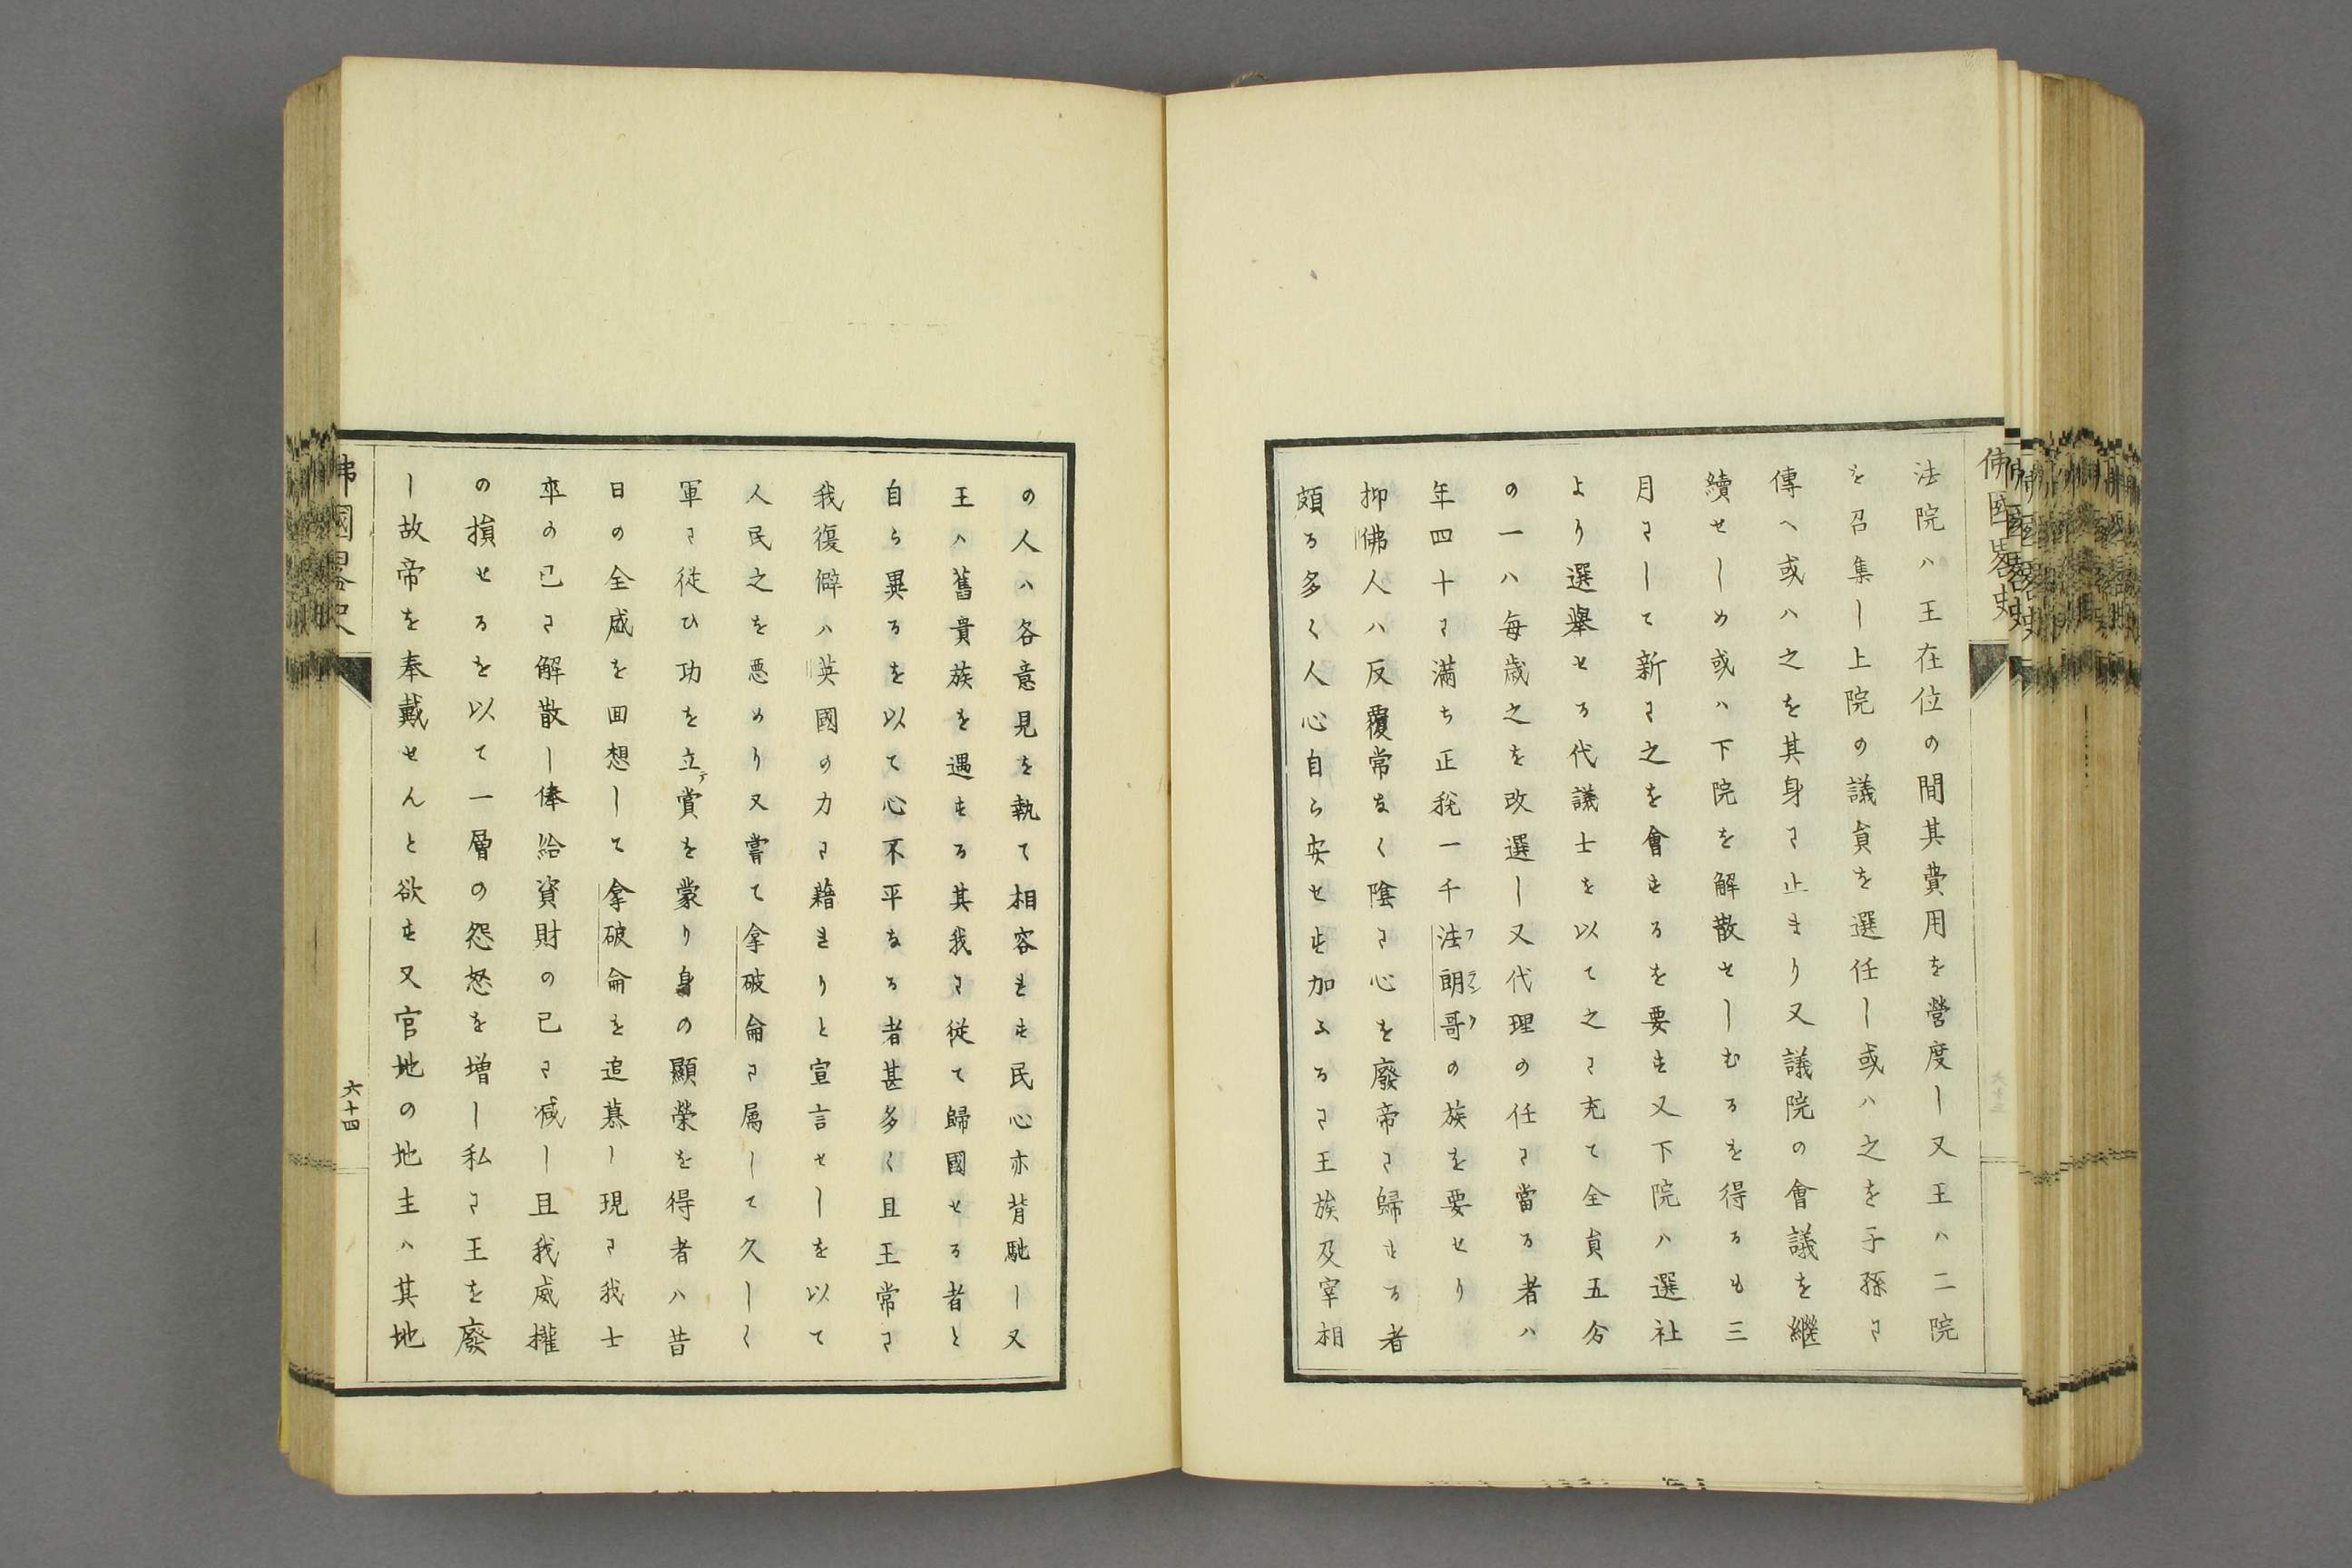 佛國畧史
法院ハ王在位の間其費用を營度し又王ハ二院
を召集し上院の議員を選任し或ハ之を子孫に
傳へ或ハ之を其身に止まり又議院の會議を繼
續せしめ或ハ下院を解散せしむるを得るも三
月にして新に之を會するを要す又下院ハ選社
より選舉せる代議士を以て之に充て全員五分
の一ハ每歲之を改選し又代理の任に當る者ハ
年四十に滿ち正税一千法朗哥の族を要せり
フランク
抑佛人ハ反覆常なく陰に心を廢帝に歸する者
頗る多く人心自ら安せす加ふるに王族及宰相
の人ハ各意見を執て相容れす民心亦背馳し又
王ハ舊貴族を遇する其我に從て歸國せる者と
自ら異るを以て心不平なる者甚多く且王常に
我復僻ハ英國の力に藉れりと宣言せしを以て
人民之を悪めり又嘗て拿破侖に屬して久しく
軍に從ひ功を立テ賞を蒙り身の顯榮を得者ハ昔
日の全盛を回想して拿破侖を追慕し現に我士
卒の已に解散し俸給資財の已に减し且我威權
の損せるを以て一層の怨怒を増し私に王を廢
し故帝を奉戴せんと欲す又官地の地主ハ其地
佛國畧史
六十四